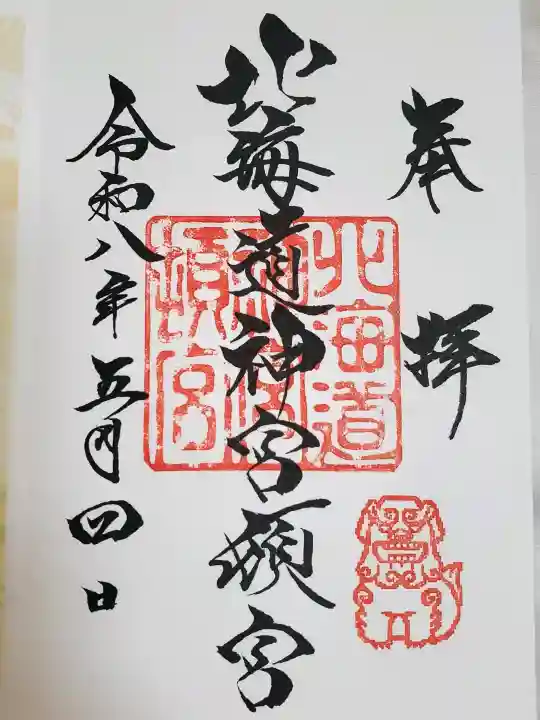 奉拝
北海道神宮頓宮
北海道
神宮
頓宮
令和八年五月四日